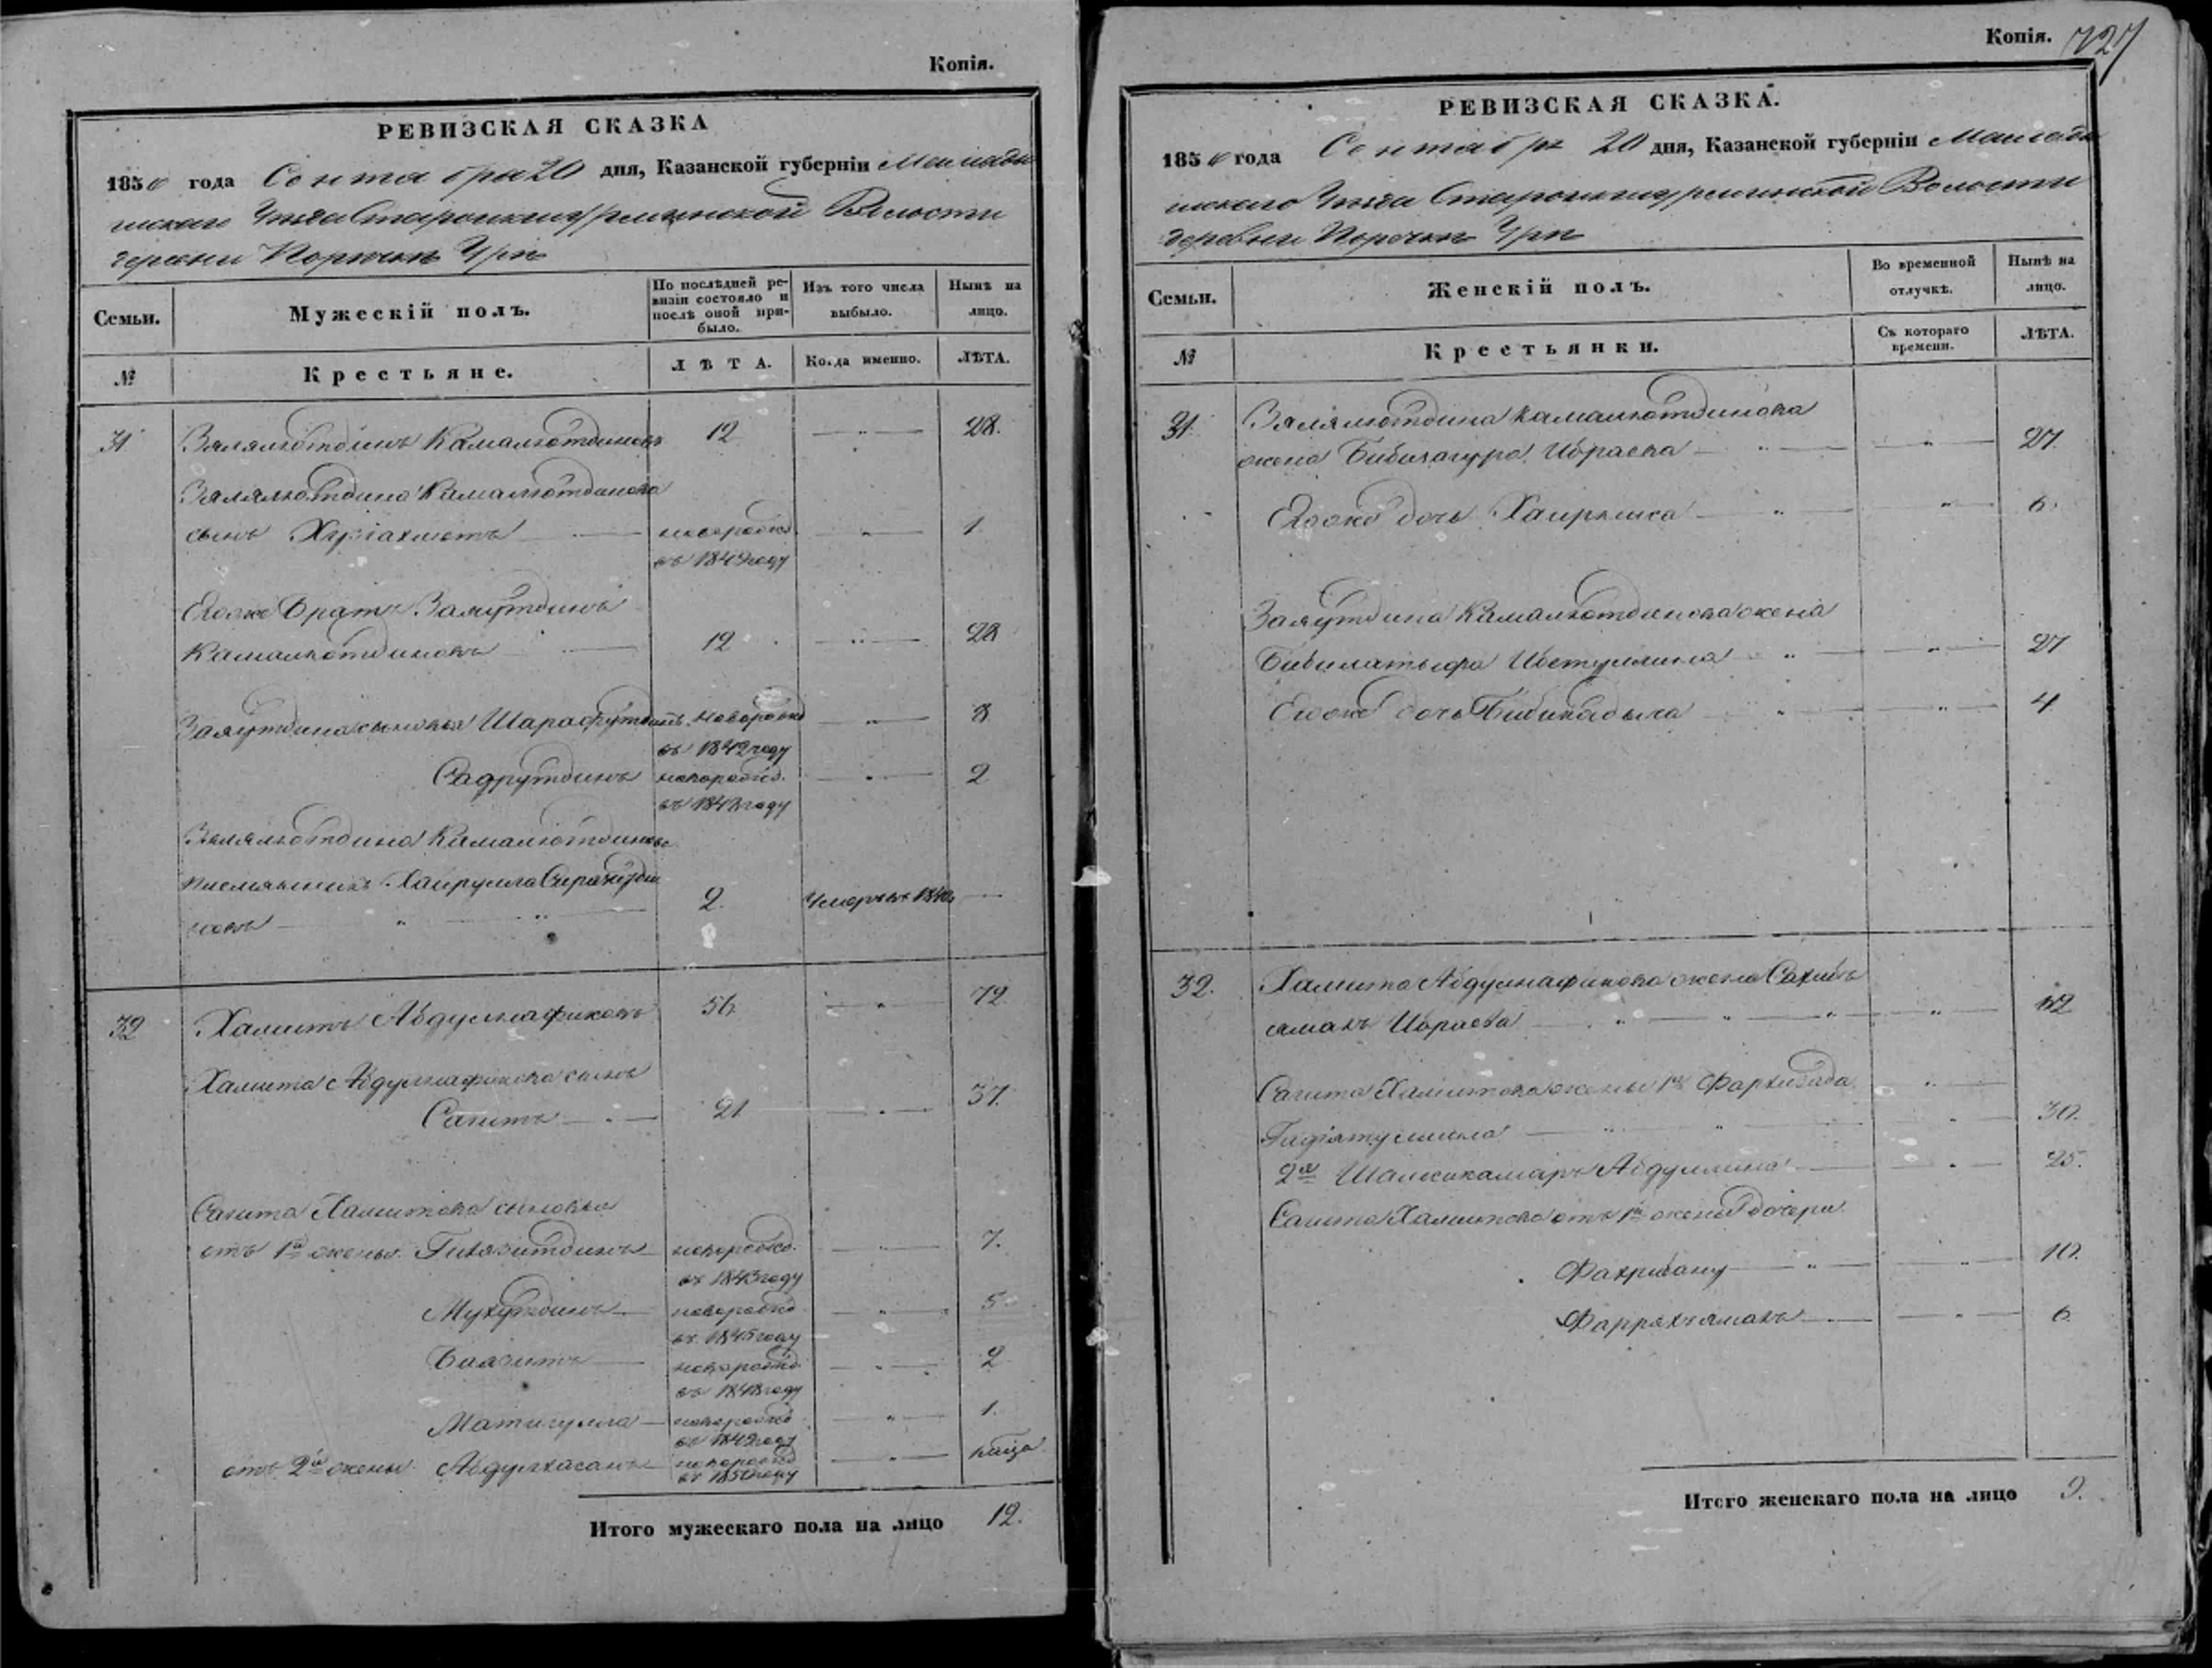 Копія.
РЕВИЗСКАЯ СКАЗКА
1850 года Сентября 20 дня, Казанской губерніи Мамады
шскаго Уѣзда Волости
деревни Порѣчнъ Урѣ
Семьи.
Мужескій полъ.
По послѣдней ре-
визіи состояло и
послѣ оной при-
было.
Изъ того числа
выбыло.
Нынѣ на
лицо.
№
Крестьяне.
ЛѢТА.
Когда именно.
ЛѢТА.
31 Залялютдинъ Камалютдиновъ 12 28.
Залялютдина Камалютдинова
сынъ новорожд. 1.
въ 1849 году
Егоже братъ Заляутдинъ
Камалютдиновъ 12 28
Заляутдина сыновья Шарафутдинъ новорожд 8
въ 1842 году
Садрутдинъ новорожд. 2
году
Залялютдина Камалютдинова
племянникъ Хайрулла
новъ 2. Умеръ въ
32 Хамитъ Абдулнафиковъ 56 72.
Хамита Абдулнафикова сынъ
Сагитъ 21 37.
Сагита Хамитова сыновья
отъ 1й жены новорожд. 7.
въ 1843 году
Мухутдинъ новорожд 5
въ 1845 году
Баязитъ новорожд. 2
въ 1848 году
Матигулла новорожд 1.
въ 1849 году
отъ 2й жены Абдулхасанъ новорожд
въ 1850 году
Итого мужескаго пола на лицо 12.
Копія. 727
РЕВИЗСКАЯ СКАЗКА.
1850 года Сентября 20 дня, Казанской губерніи Мамады
шскаго Уѣзда Волости
деревни Порѣчнъ Урѣ
Семьи.
Женскій полъ.
Во временной
отлучкѣ.
Нынѣ на
лицо.
№
Крестьянки.
Съ котораго
времени.
ЛѢТА.
31. Залялютдина Камалютдинова
жена Бибизагура Ибраева 27.
Егоже дочь 6.
Заляутдина Камалютдинова жена
Бибилатыфа 27
Егоже дочь 4
32. Хамита Абдулнафикова жена
Ибраева
Сагита Хамитова жены 1я Фархизада
Гафіятуллина 30.
2я Шамсикамаръ Абдуллина 25.
Сагита Хамитова отъ 1й жены дочери
Фахрибану 10.
Фаррахзяманъ 6
Итого женскаго пола на лицо 9.